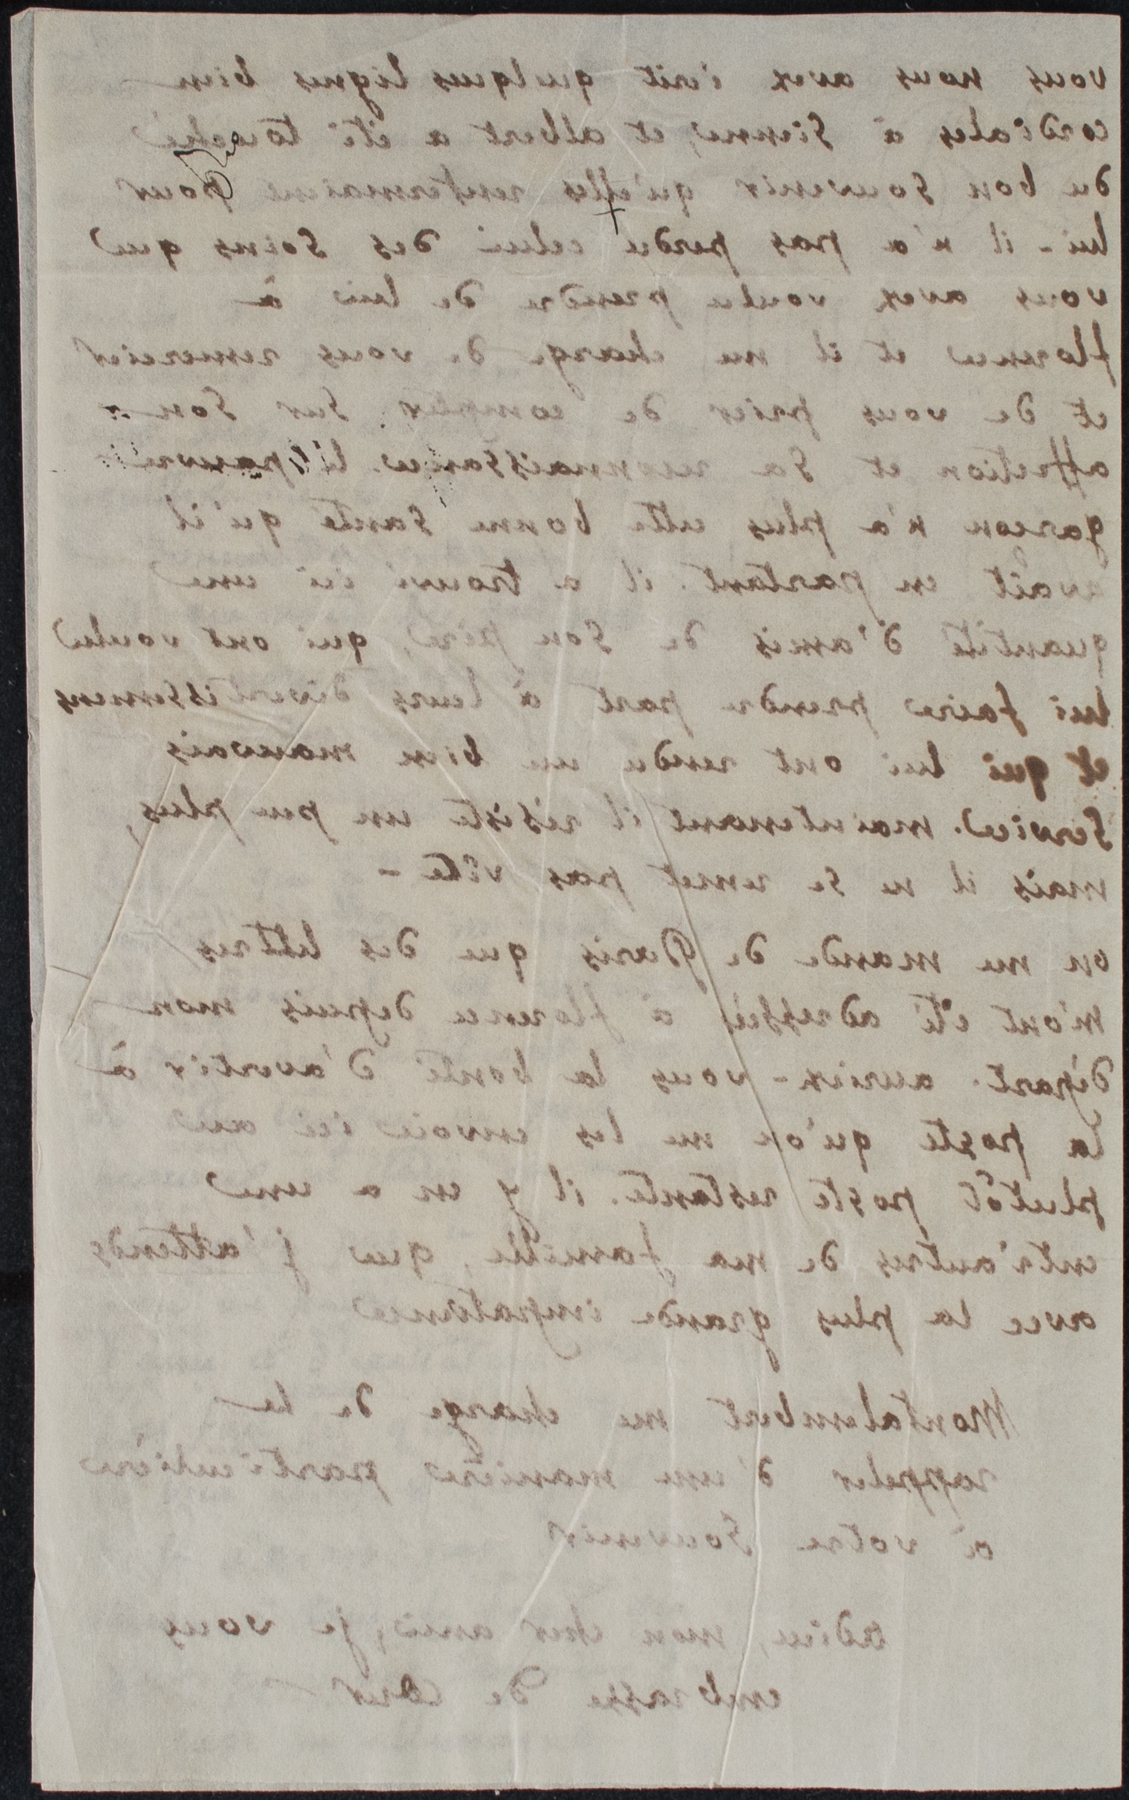 vous nous avez écrit quelques lignes bien
cordiales à Sienne, et albert a été touché
du bon Souvenir qu'elles renfermaient pour
lui - il n'a pas perdu celui des Soins que
vous avez voulu prendre de lui à
florence et il me charge de vous remercier
et de vous prier de compter Sur Son
affection et Sa reconnaissance. le pauvre
garcon n'a plus cette bonne Santé qu'il
avait en partant. il a trouvé ici une
quantité d'amis de Son père, qui ont voulu
lui faire prendre part à leurs divertissemens
et qui lui ont rendu un bien mauvais
Service. maintenant il résiste un peu plus,
mais il ne se remet pas vîte -
on me mande de Paris que des lettres
m'ont été adressées à florence depuis mon
départ. auriez-vous la bonté d'avertir à
la poste qu'on me les envoie ici ou
plutôt poste restante. il y en a une
entr'autres de ma famille, que j'attends
avec la plus grande impatience
Montalembert me charge de le
rappeler d'une manière particulière
à votre Souvenir
adieu, mon cher ami, je vous
embrasse de cœur